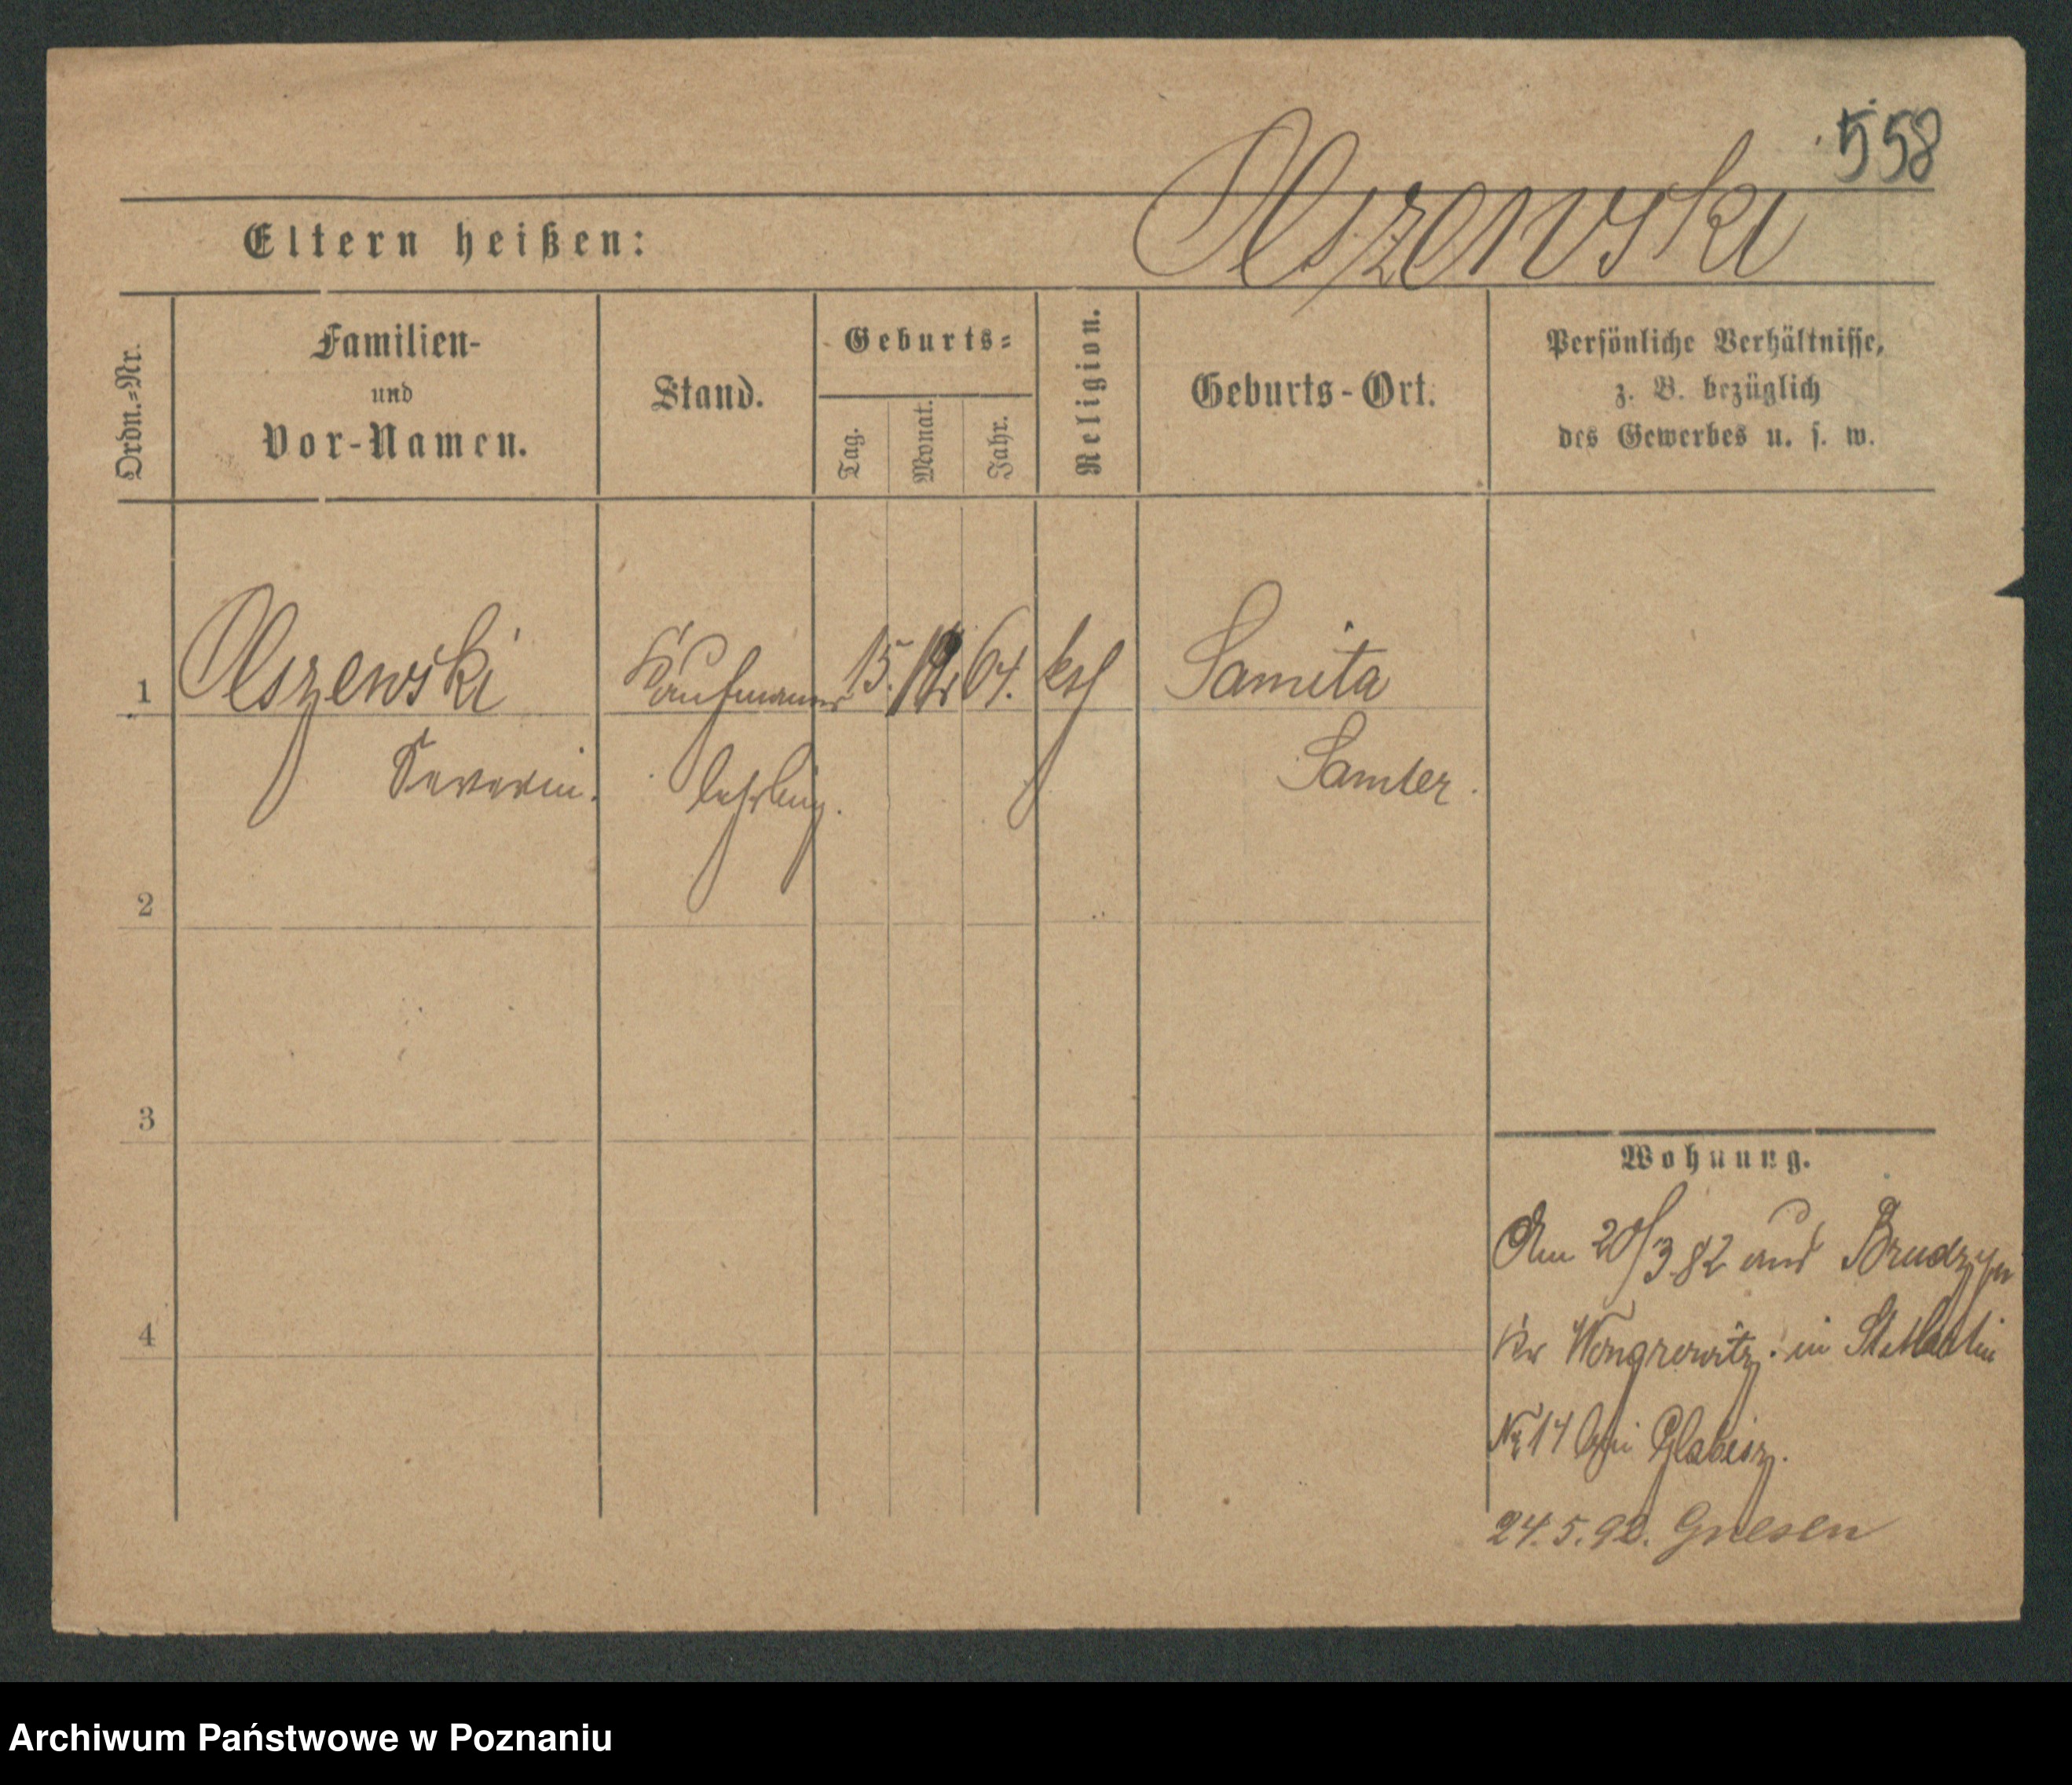 558
Olszewski
Eltern heißen:
Ordn.=Nr.
Familien-
und
Vor-Namen.
Stand.
Geburts=
Tag.
Monat.
Jahr.
Religion.
Geburts-Ort.
Persönliche Verhältnisse,
z. B. bezüglich
des Gewerbes u. s. w.
1 Olszewski Kaufmanns 15. 64. kth Samita
Severin. lehrling. Samter.
2
3
4
Wohnung.
Am 20/3 82 aus Brudzyn
Kr Wongrowitz in St. Martin
No 14 bei Glabisz.
24.5.92. Gnesen
Archiwum Państwowe w Poznaniu